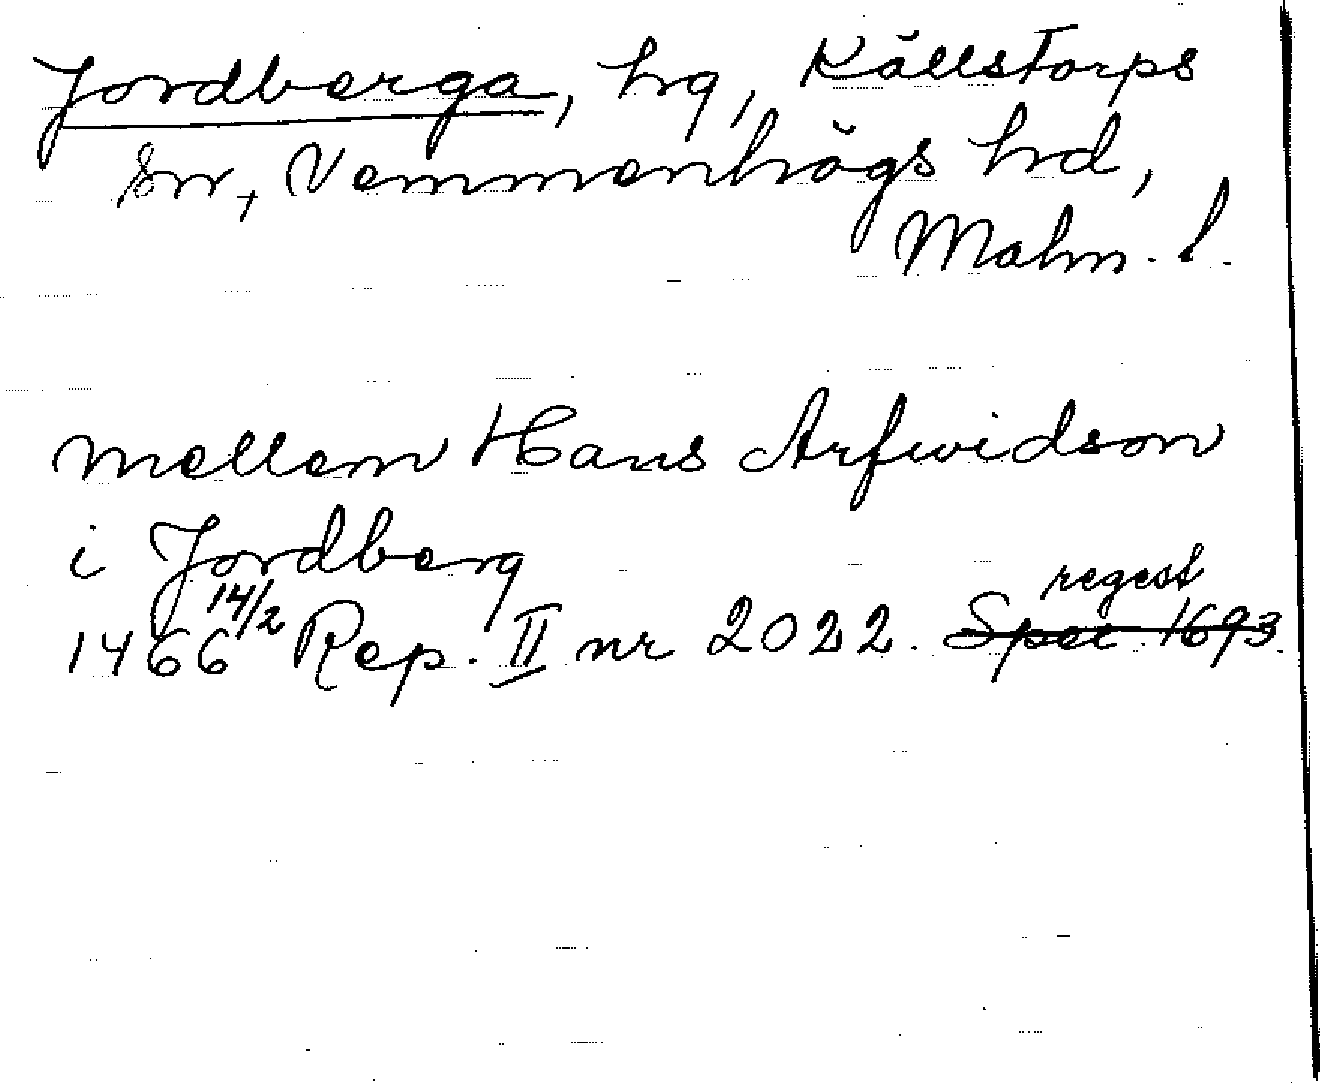 Jordberga, hg, Källstorps
sn, Vemmenhögs hd,
Malm. l.
mellem Hans Arfwidson
i Jordberg
regest
1466 14/2 Rep. II nr 2022. Spec. 1693.